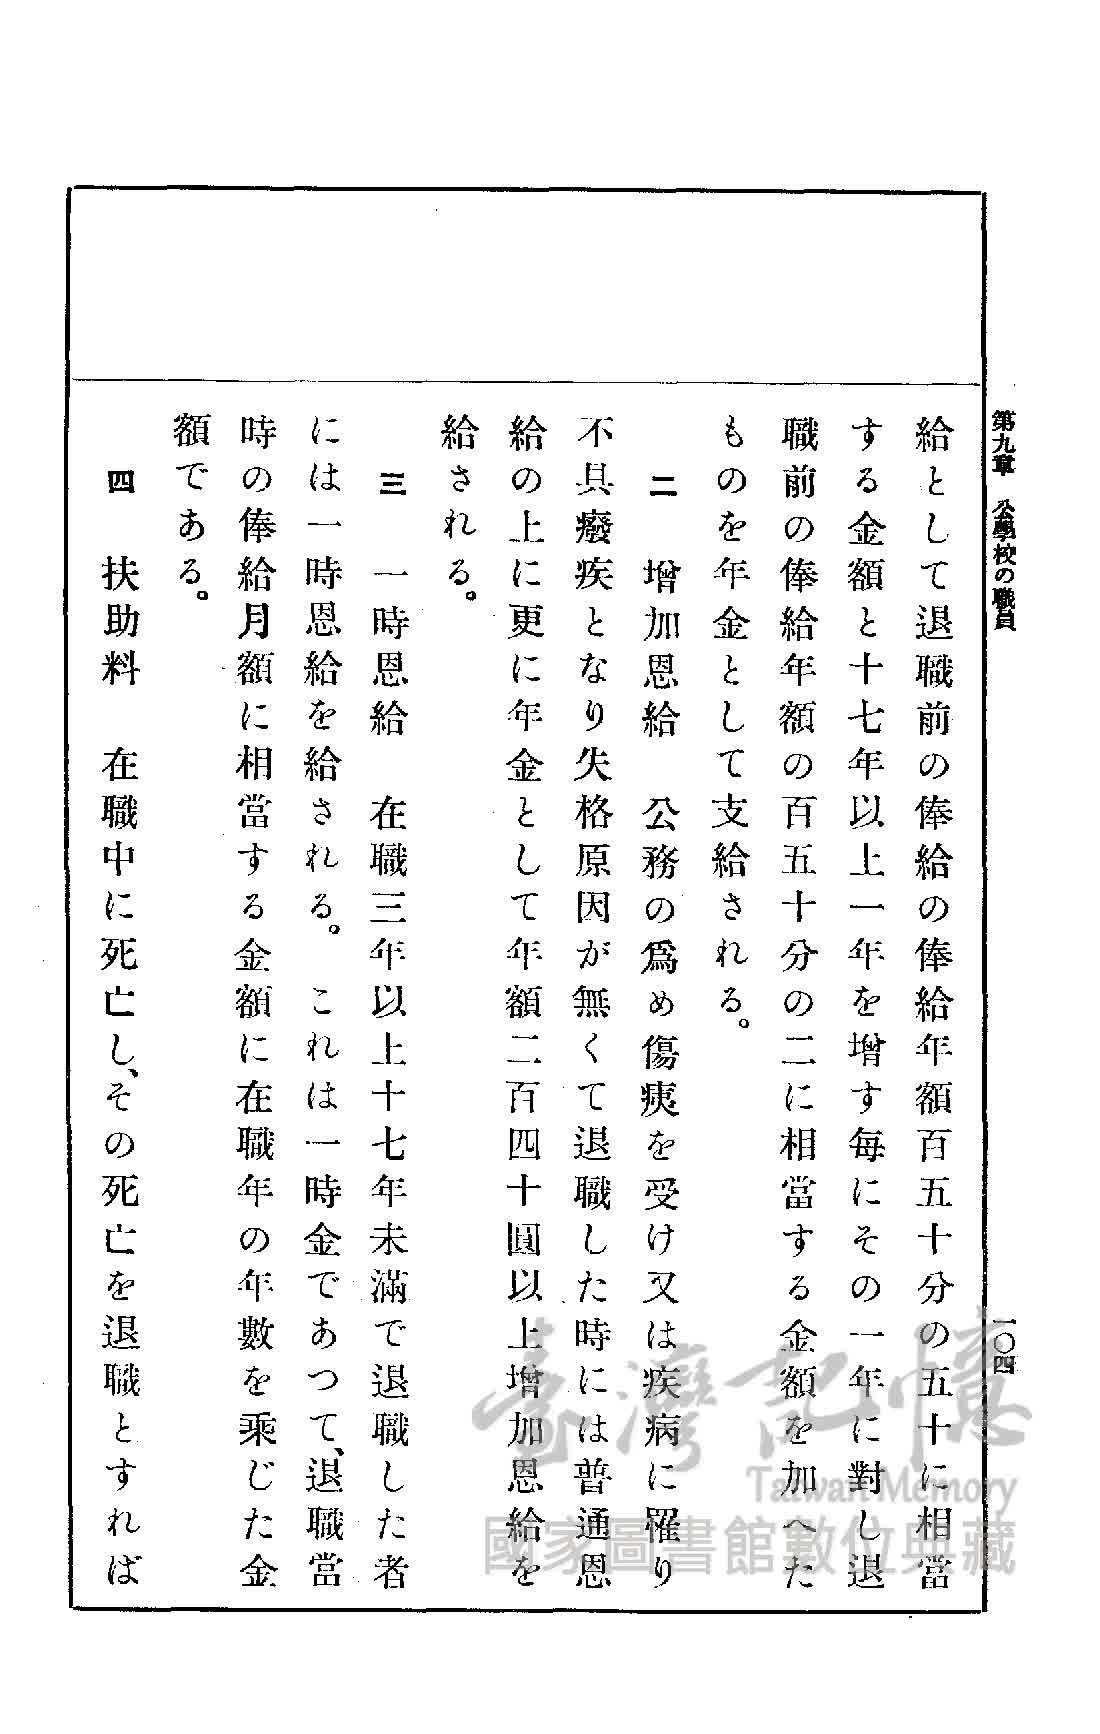 第九章　公學校の職員
一〇四
給として退職前の俸給の俸給年額百五十分の五十に相當
する金額と十七年以上一年を增す每にその一年に對し退
職前の俸給年額の百五十分の二に相當する金額を加へた
ものを年金として支給される。
二　增加恩給　公務の爲め傷痍を受け又は疾病に罹り
不具癈疾となり失格原因が無くて退職した時には普通恩
給の上に更に年金として年額二百四十圓以上增加恩給を
給される。
三　一時恩給　在職三年以上十七年未滿で退職した者
には一時恩給を給される。これは一時金であつて、退職當
時の俸給月額に相當する金額に在職年の年數を乘じた金
額である。
四　扶助料　在職中に死亡し、その死亡を退職とすれば
臺灣記憶
Taiwan Memory
國家圖書館數位典藏